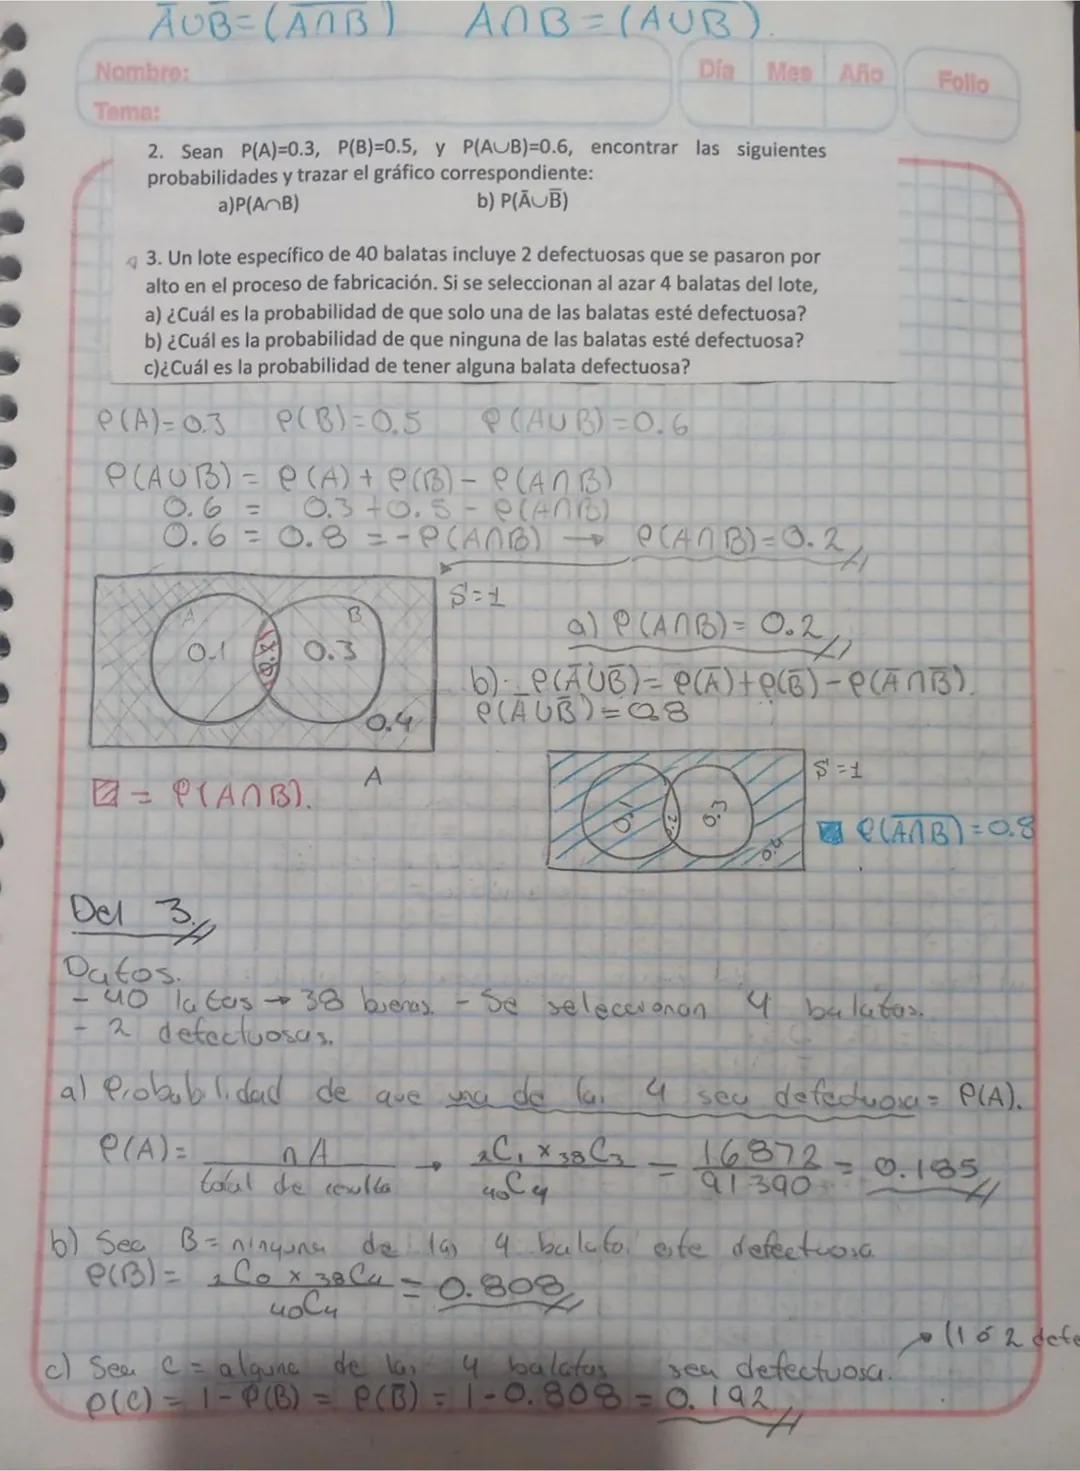 A̅∪B̅=(A̅∩̅B̅) A∩B=(A∪B̅).
Nombre: Día Mes Año Folio
Tema:
2. Sean P(A)=0.3, P(B)=0.5, y P(A∪B)=0.6, encontrar las siguientes
probabilidades y trazar el gráfico correspondiente:
a)P(A∩B) b) P(A̅∪B̅)
3. Un lote específico de 40 balatas incluye 2 defectuosas que se pasaron por
alto en el proceso de fabricación. Si se seleccionan al azar 4 balatas del lote,
a) ¿Cuál es la probabilidad de que solo una de las balatas esté defectuosa?
b) ¿Cuál es la probabilidad de que ninguna de las balatas esté defectuosa?
c)¿Cuál es la probabilidad de tener alguna balata defectuosa?
P(A)=0.3 P(B)=0.5 P(A∪B)=0.6
P(A∪B) = P(A) + P(B) - P(A∩B)
0.6 = 0.3+0.5 - P(A∩B)
0.6 = 0.8 = -P(A∩B) → P(A∩B)=0.2
S=1
A B
0.1 0.2 0.3
0.4
a) P(A∩B)= 0.2
b) P(A̅∪B̅)= P(A̅)+P(B̅)-P(A̅∩B̅).
P(A̅∪B̅)=0.8
A
= P(A∩B).
S=1
0.1 0.2 0.3
0.4
P(A̅∩̅B̅)=0.8
Del 3.
Datos.
- 40 latas → 38 buenas. - Se seleccionan 4 balatas.
- 2 defectuosas.
a) Probabilidad de que una de las 4 sea defectuosa = P(A).
P(A)= nA / total de resulta → ₂C₁ × ₃₈C₃ / ₄₀C₄ = 16872 / 91390 = 0.185
b) Sea B = ninguna de las 4 balata este defectuosa
P(B)= ₂C₀ × ₃₈C₄ / ₄₀C₄ = 0.808
→ (1 ó 2 defe
c) Sea C = alguna de las 4 balatas sea defectuosa.
P(C) = 1-P(B) = P(B̅) = 1-0.808 = 0.192